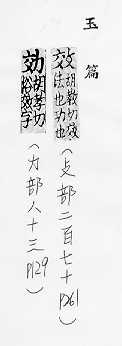 玉篇
效 胡教切效法也功也
（攴部二百七十 P261）
効 胡孝切俗效字
（力部八十三 P129）